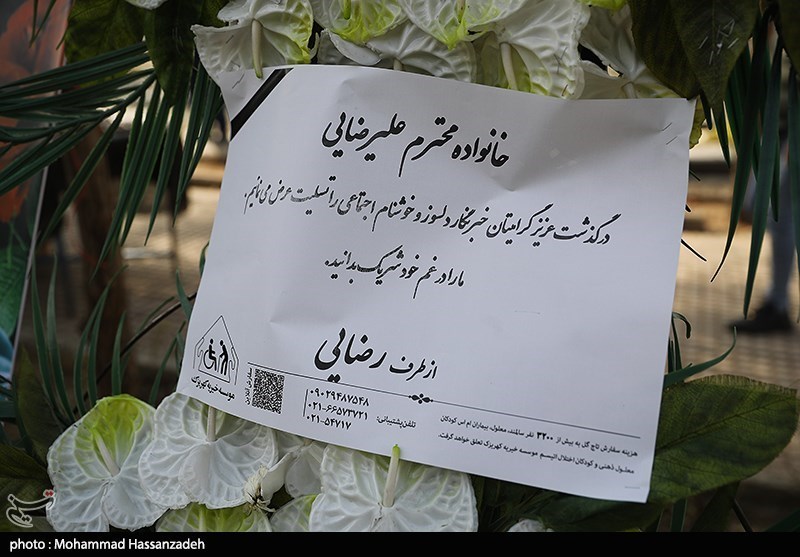 خانواده محترم علیرضایی
درگذشت عزیز گرامیتان خبرنگار دلسوز و خوشنام اجتماعی را تسلیت عرض می‌نمائیم.
ما را در غم خود شریک بدانید.
از طرف رضایی
موسسه خیریه کهریزک
سفارش آنلاین
تلفن پشتیبانی:
۰۹۰۲۹۴۸۷۵۴۸
۰۲۱-۶۶۵۷۳۷۲۱
۰۲۱-۵۴۷۱۷
هزینه سفارش تاج گل به بیش از ۳۲۰۰ نفر سالمند، معلول، بیماران ام اس کودکان
معلول ذهنی و کودکان اختلال اتیسم موسسه خیریه کهریزک تعلق خواهد گرفت.
تسنیم
photo : Mohammad Hassanzadeh